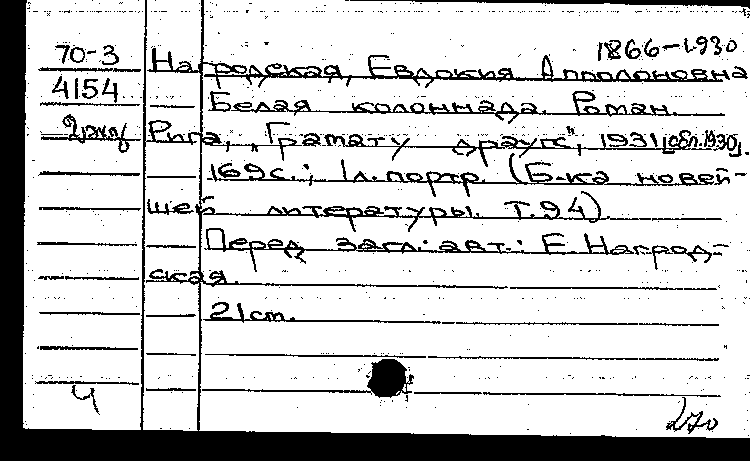 1866-1930
70-3 Нагродская, Евдокия Апполоновна
4154 Белая колоннада. Роман.
2 экз Рига, „Грамату драугс", 1931 [обл. 1930].
169 с.; 1 л. портр. (Б-ка новей-
шей литературы. Т. 94).
Перед загл.: авт.: Е. Нагрод-
ская.
21 cm.
Ч
270